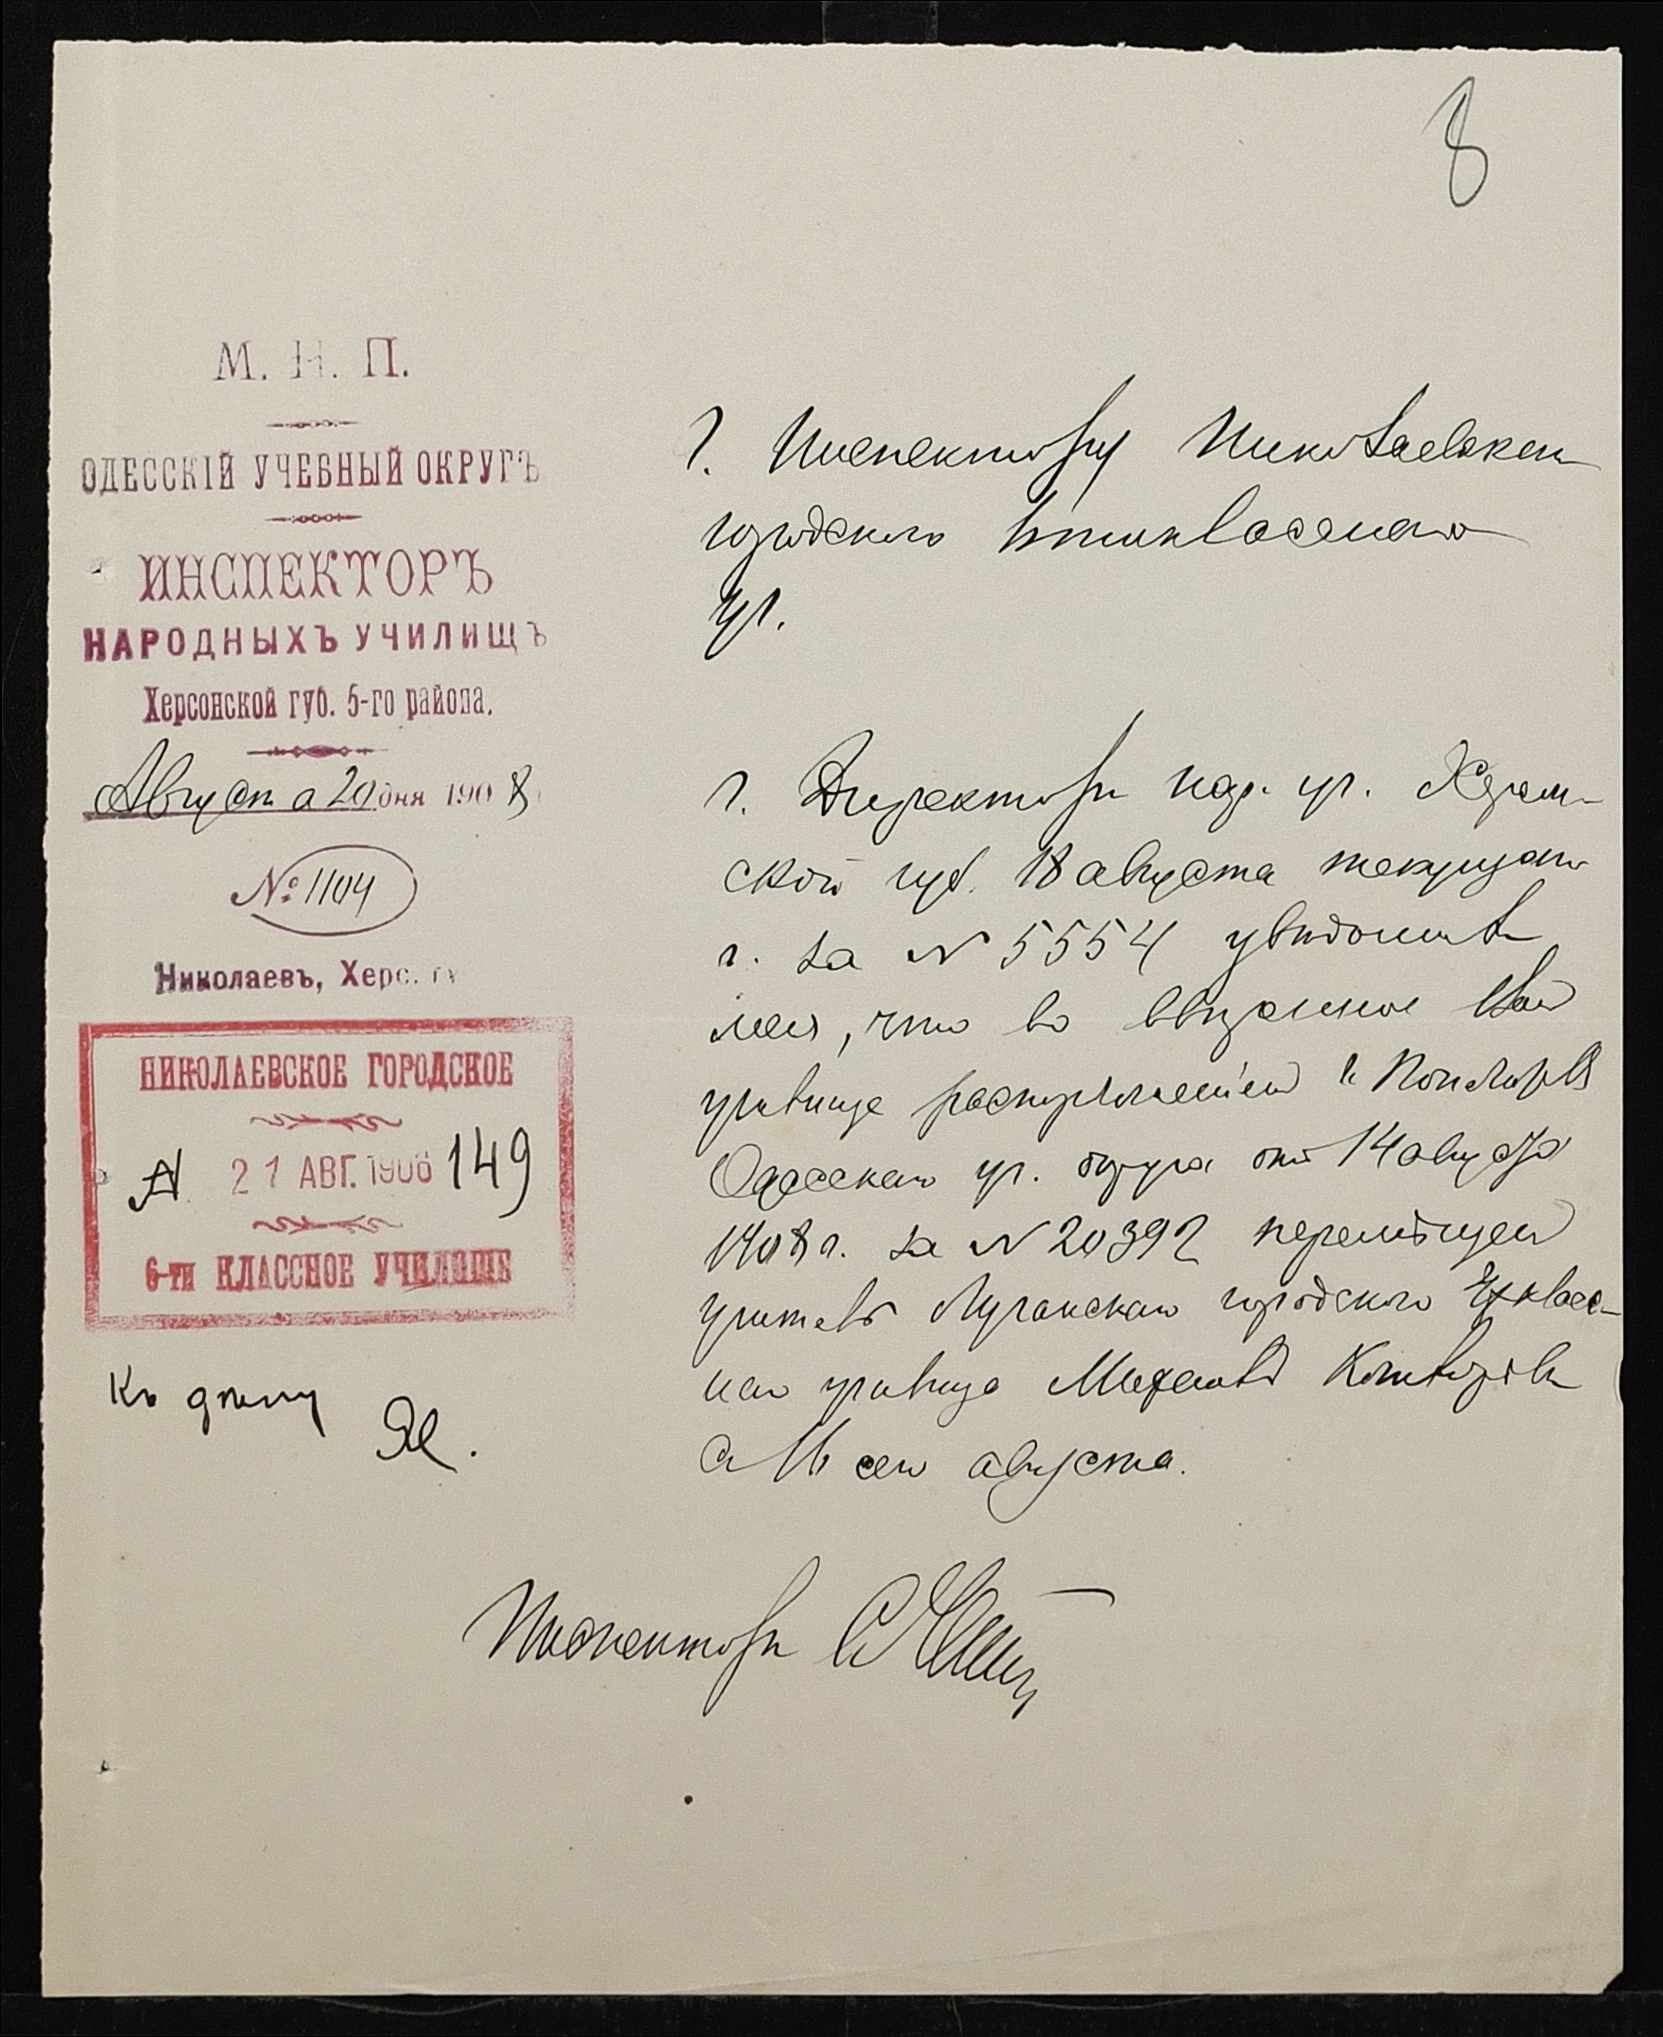 8
М. Н. П.
ОДЕССКІЙ УЧЕБНЫЙ ОКРУГЪ
ИНСПЕКТОРЪ
НАРОДНЫХЪ УЧИЛИЩЪ
Херсонской губ. 5-го района.
Августа 20 дня 1908
№ 1104
Николаевъ, Херс. гу
НИКОЛАЕВСКОЕ ГОРОДСКОЕ
21 АВГ. 1908 149
6-ти КЛАССНОЕ УЧИЛИЩЕ
Къ дѣлу
Г. Инспектору Николаевскаго
городского 6тикласснаго
уч.
Г. Директоръ нар. уч. Херсон-
ской губ. 18 августа текущаго
г. за № 5554 увѣдомилъ
меня, что во ввѣренное Вамъ
училище распоряженіемъ г. Попечителя
Одесскаго уч. округа отъ 14 августа
1908 г. за № 20392 перемѣщенъ
учитель Луганскаго городского 4х класс-
наго училища Михаилъ
съ 16 сего августа.
Инспекторъ